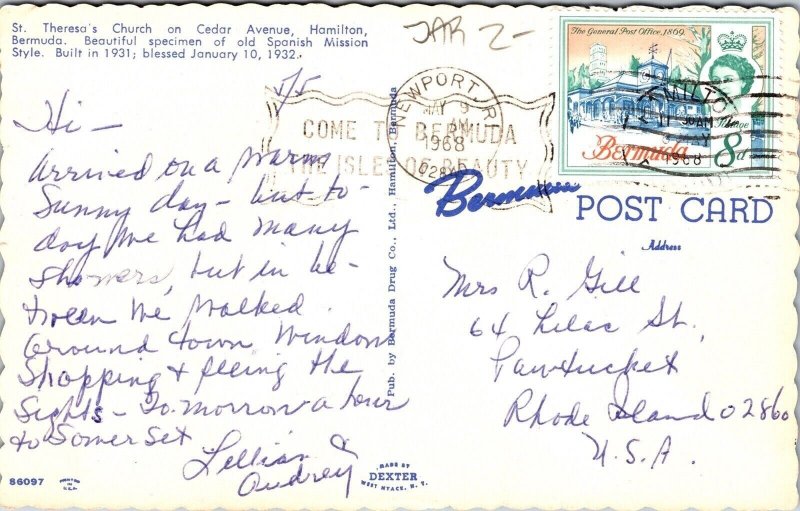 St. Theresa's Church on Cedar Avenue, Hamilton,
Bermuda. Beautiful specimen of old Spanish Mission
Style. Built in 1931; blessed January 10, 1932.
JAR 2-
5/5
Hi -
Arrived on a warm
Sunny day - but to-
day we had many
showers, but in be-
tween we walked
around town Window
Shopping + seeing the
Sights - Tomorrow a tour
to Somerset
Lillian &
Audrey
86097
PRINTED IN U.S.A.
Pub. by Bermuda Drug Co., Ltd., Hamilton, Bermuda
MADE BY
DEXTER
WEST NYACK, N. Y.
COME TO BERMUDA
THE ISLES OF BEAUTY
NEWPORT, R.
MAY 9
AM
1968
0284
The General Post Office, 1869
Bermuda
8d
HAMILTON
1968
Bermuda
POST CARD
Address
Mrs R. Gill
64 Lilac St.,
Pawtucket
Rhode Island 02860
U.S.A.